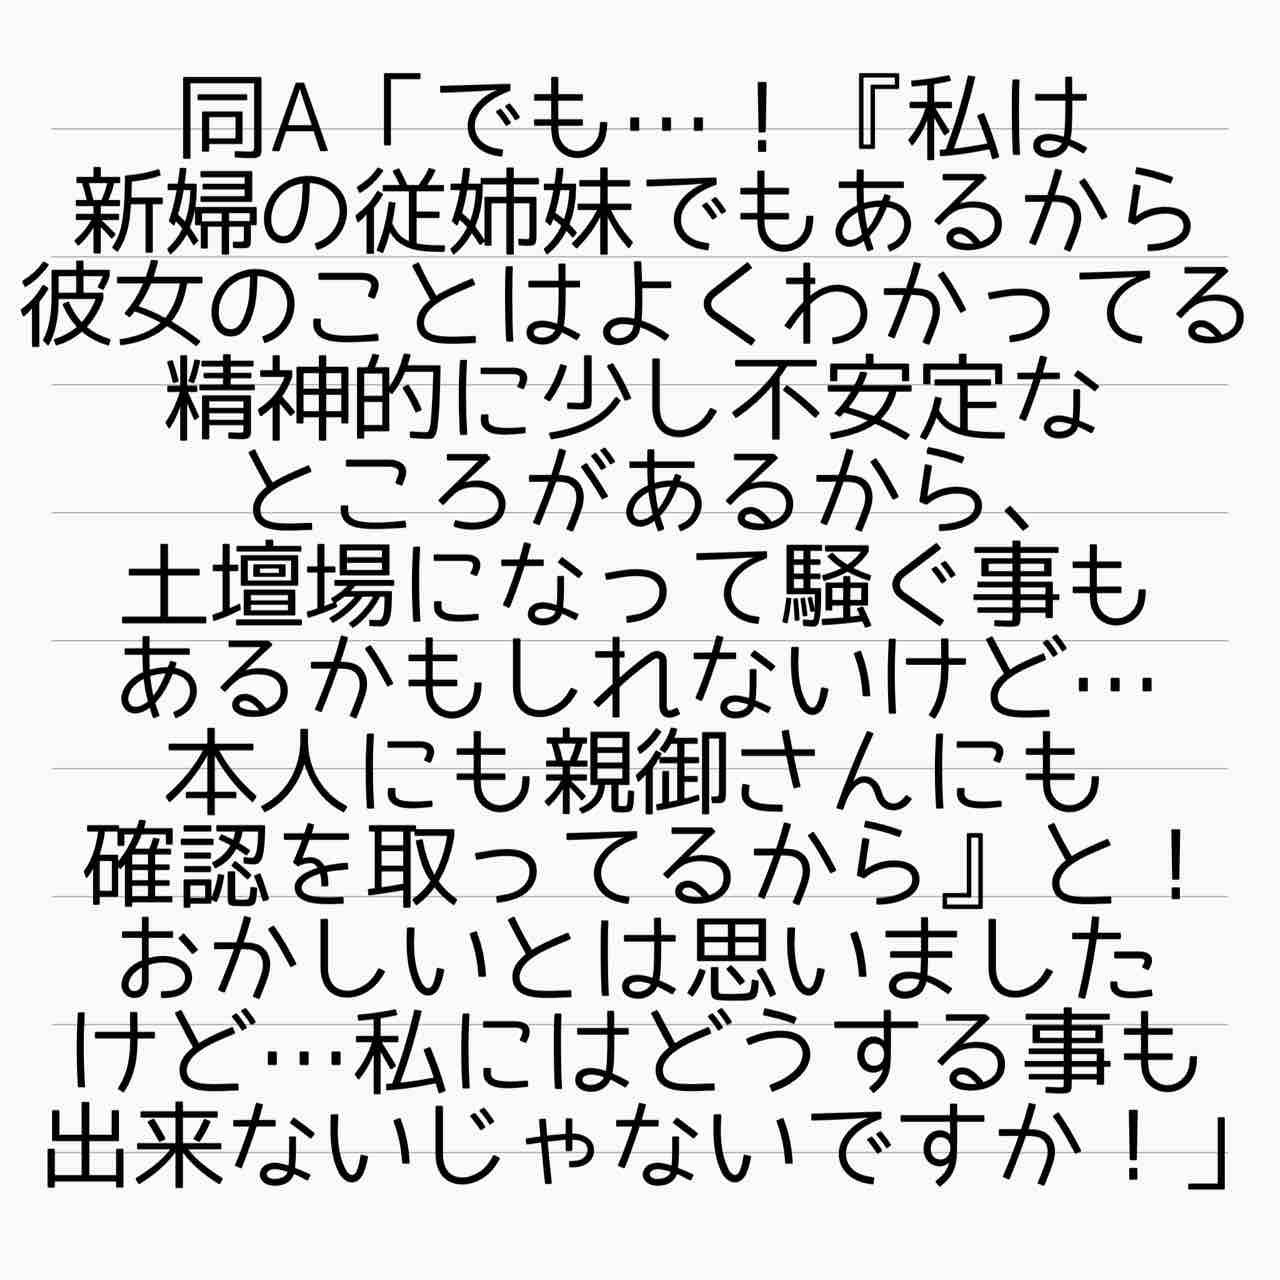 同A「でも…！『私は
新婦の従姉妹でもあるから
彼女のことはよくわかってる
精神的に少し不安定な
ところがあるから、
土壇場になって騒ぐ事も
あるかもしれないけど…
本人にも親御さんにも
確認を取ってるから』と！
おかしいとは思いました
けど…私にはどうする事も
出来ないじゃないですか！」